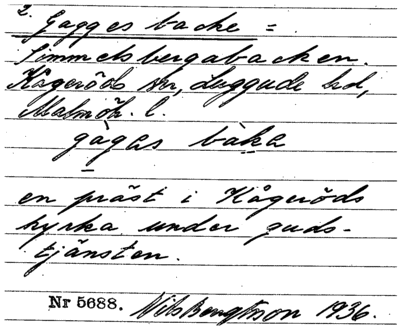 2. Gagges backe =
Simmelsbergabacken.
Kågeröds sn, Luggude hd,
Malmöh. l.
gàgas bàka
en präst i Kågeröds
kyrka under guds-
tjänsten.
Nr 5688. Nils Bengtsson 1936.